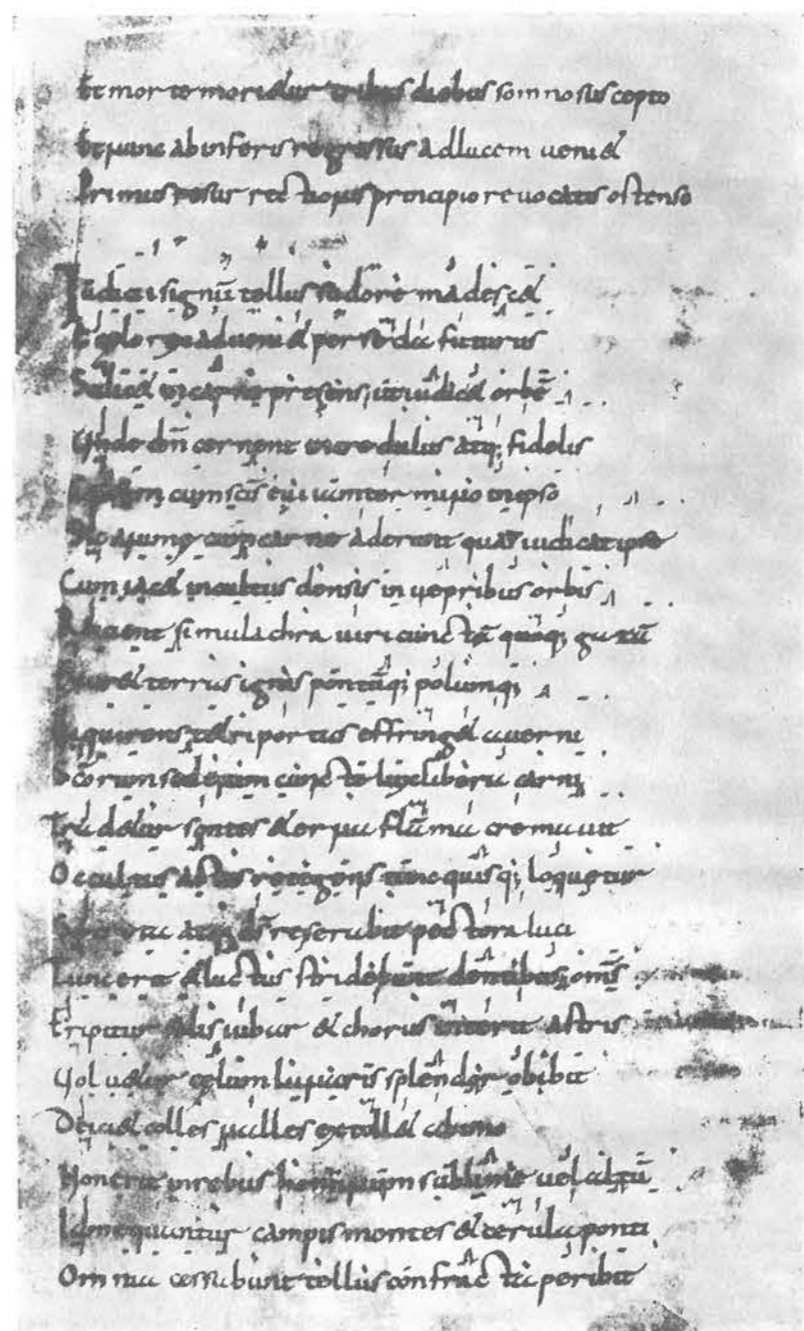 Et morte morietur tribus diebus somno suscepto
Et nunc ab inferis regressus ad lucem veniet
Primus resurrectionis principio revocatis ostenso
Iudicii signū tellus sudore madescet
E celo rex adveniet per secla futurus
Scilicet in carne presens ut iudicet orbē
Unde dm̄ cernent incredulus atq; fidelis
cum sc̄is
Sic anime cum carne aderunt quas iudicat ipse
Cum iacet incultus densis in vepribus orbis
Reicient simulachra viri cunctā quoq; gazā
Exuret terras ignis pontūq; polumq;
Inquirens tetri portas effringet averni
Scorum sed enim cuncte lux libera carni
Tradetur sontes eterna flāma cremavit
Occultos actos retegens tunc quisq; loquetur
Secreta atq; ds̄ reserabit pectora luci
Tunc erit et luctus stridebunt dentibus om̄s
Eripitur solis iubar et chorus interit astris
Volvetur celum lunaris splendor obibit
Deiciet colles valles extollet ab imo
Non erit in rebus sublime vel altū
Iam equantur campis montes et cerula ponti
Omnia cessabunt tellus confracta peribit